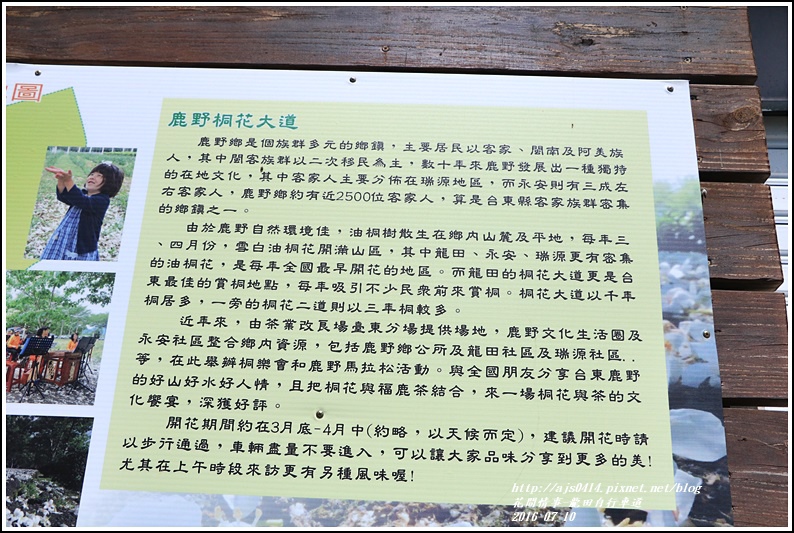 圖
鹿野桐花大道
鹿野鄉是個族群多元的鄉鎮，主要居民以客家、閩南及阿美族
人，其中閩客族群以二次移民為主，數十年來鹿野發展出一種獨特
的在地文化，其中客家人主要分佈在瑞源地區，而永安則有三成左
右客家人，鹿野鄉約有近2500位客家人，算是台東縣客家族群密集
的鄉鎮之一。
由於鹿野自然環境佳，油桐樹散生在鄉內山麓及平地，每年三
、四月份，雪白油桐花開滿山區，其中龍田、永安、瑞源更有密集
的油桐花，是每年全國最早開花的地區。而龍田的桐花大道更是台
東最佳的賞桐地點，每年吸引不少民衆前來賞桐。桐花大道以千年
桐居多，一旁的桐花二道則以三年桐較多。
近年來，由茶業改良場臺東分場提供場地，鹿野文化生活圈及
永安社區整合鄉內資源，包括鹿野鄉公所及龍田社區及瑞源社區..
等，在此舉辦桐樂會和鹿野馬拉松活動。與全國朋友分享台東鹿野
的好山好水好人情，且把桐花與福鹿茶結合，來一場桐花與茶的文
化饗宴，深獲好評。
開花期間約在3月底-4月中(約略，以天候而定)，建議開花時請
以步行通過，車輛盡量不要進入，可以讓大家品味分享到更多的美!
尤其在上午時段來訪更有另種風味喔!
http://ajs0414.pixnet.net/blog
花間情事-龍田自行車道
2016-07-10